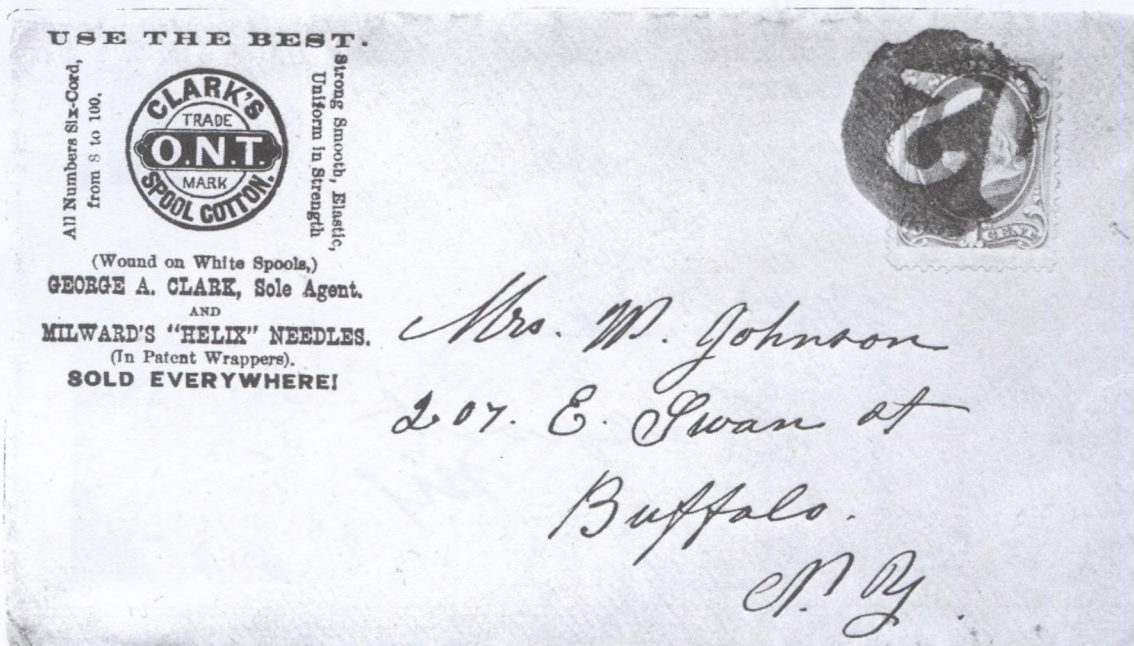 USE THE BEST.
All Numbers Six-Cord,
from 8 to 100.
CLARK'S
TRADE
O.N.T.
MARK
SPOOL COTTON.
Strong Smooth, Elastic,
Uniform in Strength
(Wound on White Spools,)
GEORGE A. CLARK, Sole Agent.
AND
MILWARD'S "HELIX" NEEDLES.
(In Patent Wrappers).
SOLD EVERYWHERE!
Mrs. W. Johnson
207. E. Swan st
Buffalo.
N. Y.